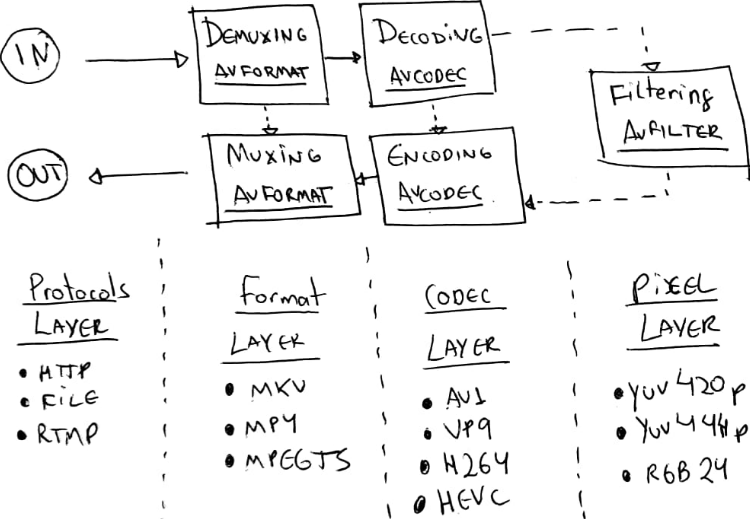 IN
DEMUXING
AVFORMAT
DECODING
AVCODEC
Filtering
AVFILTER
OUT
MUXING
AVFORMAT
ENCODING
AVCODEC
Protocols
LAYER
• HTTP
• FILE
• RTMP
Format
LAYER
• MKV
• MP4
• MPEGTS
CODEC
LAYER
• AV1
• VP9
• H264
• HEVC
PiXEL
LAYER
• YUV420p
• YUV444p
• RGB24